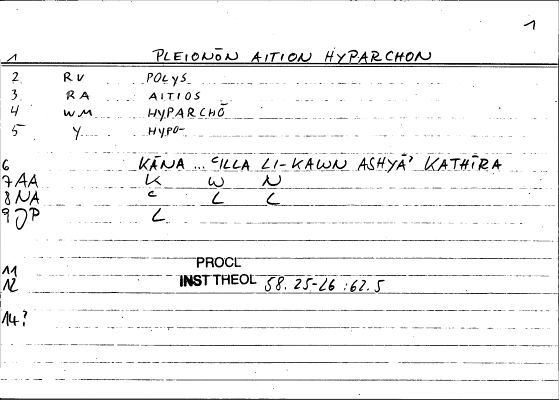 1
1 PLEIONŌN AITION HYPARCHON
2 RV POLYS
3 RA AITIOS
4 WM HYPARCHŌ
5 Y HYPO-
6 KĀNA ... ʿILLA LI-KAWN ASHYĀʾ KATHĪRA
7 AA K W N
8 NA ʿ L L
9 JP L
11 PROCL
12 INST THEOL 58.25-26 :62.5
14?